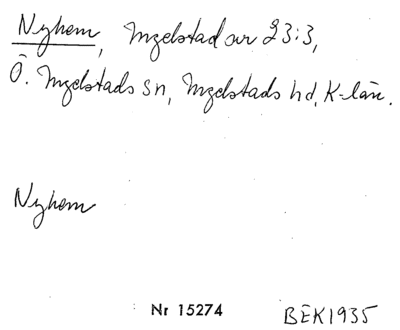 Nyhem, Ingelstad avr 23:3,
Ö. Ingelstads sn, Ingelstads hd, K-län.
Nyhem
Nr 15274 BEK1935